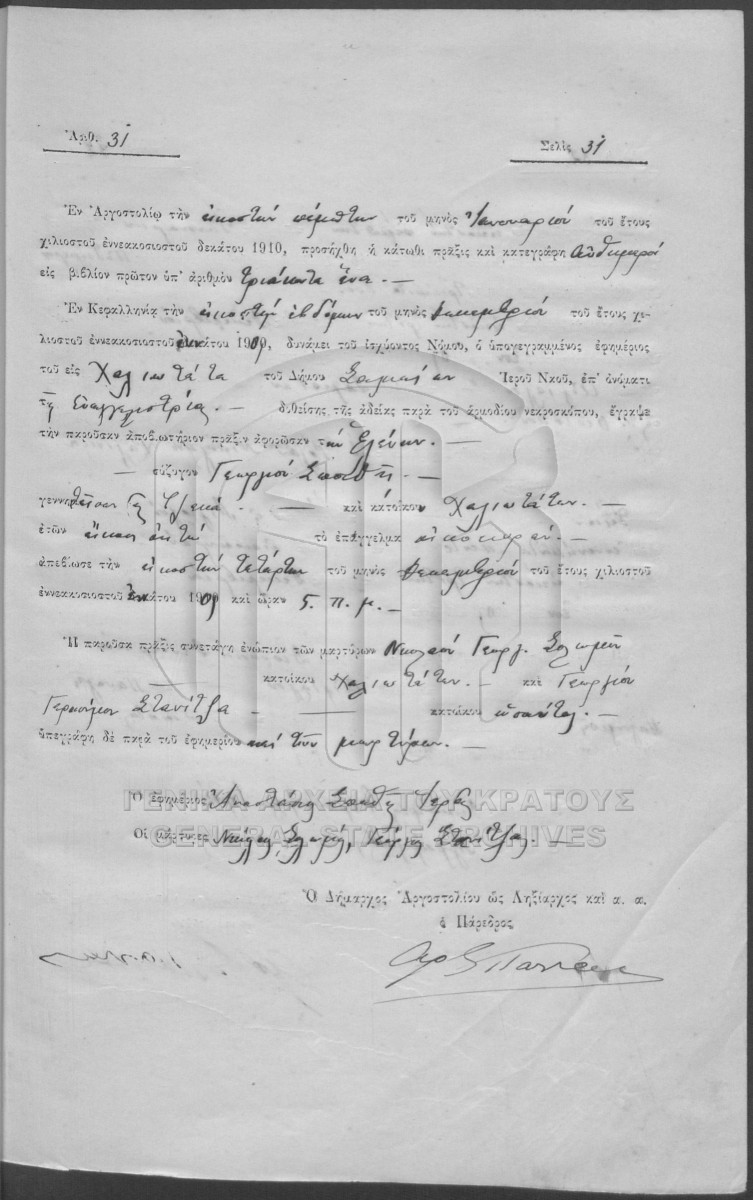 Ἀριθ. 31
Σελὶς 31
Ἐν Ἀργοστολίῳ τὴν εἰκοστὴν πέμπτην τοῦ μηνὸς Ἰανουαρίου τοῦ ἔτους
χιλιοστοῦ ἐννεακοσιοστοῦ δεκάτου 1910, προσήχθη ἡ κάτωθι πρᾶξις καὶ κατεγράφη αὐθημερόν
εἰς βιβλίον πρῶτον ὑπ' ἀριθμὸν τριάκοντα ἕνα. —
Ἐν Κεφαλληνίᾳ τὴν εἰκοστὴν ἑβδόμην τοῦ μηνὸς Δεκεμβρίου τοῦ ἔτους χι-
λιοστοῦ ἐννεακοσιοστοῦ ἐνάτου 1909, δυνάμει τοῦ ἰσχύοντος Νόμου, ὁ ὑπογεγραμμένος ἐφημέριος
τοῦ εἰς Χαλιωτάτα τοῦ Δήμου Σαμαίων Ἱεροῦ Ναοῦ, ἐπ' ὀνόματι
τῆς Εὐαγγελιστρίας. — δοθείσης τῆς ἀδείας παρὰ τοῦ ἁρμοδίου νεκροσκόπου, ἔγραψε
τὴν παροῦσαν ἀποβιωτήριον πρᾶξιν ἀφορῶσαν τὴν Ἑλένην. —
— σύζυγον Γεωργίου Σπαθῆ. —
καὶ κατοίκου Χαλιωτάτων. —
ἐτῶν εἴκοσι ὀκτώ τὸ ἐπάγγελμα οἰκοκυράν. —
ἀπεβίωσε τὴν εἰκοστὴν τετάρτην τοῦ μηνὸς Δεκεμβρίου τοῦ ἔτους χιλιοστοῦ
ἐννεακοσιοστοῦ ἐνάτου 1909 καὶ ὥραν 5. π. μ. —
Ἡ παροῦσα πρᾶξις συνετάγη ἐνώπιον τῶν μαρτύρων Νικολάου Γεωργ. Σολωμοῦ
— κατοίκου Χαλιωτάτων. — καὶ Γεωργίου
Γερασίμου Στανίτζα — κατοίκου ὡσαύτως. —
ὑπεγράφη δὲ παρὰ τοῦ ἐφημερίου καὶ τῶν μαρτύρων. —
Ὁ ἐφημέριος Ἀναστάσιος Σπαθῆς Ἱερεύς
ΓΕΝΙΚΑ ΑΡΧΕΙΑ ΤΟΥ ΚΡΑΤΟΥΣ
Οἱ μάρτυρες Νικόλαος Σολωμός, Γεώργιος Στανίτζας —
GENERAL STATE ARCHIVES
Ὁ Δήμαρχος Ἀργοστολίου ὡς Ληξίαρχος καὶ α. α.
ὁ Πάρεδρος